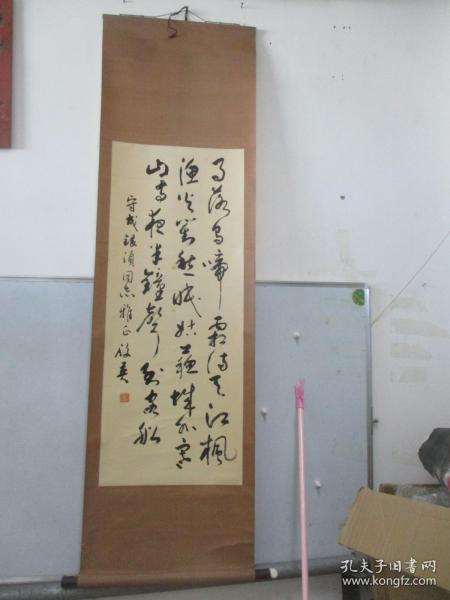 月落烏啼霜满天江楓
渔火對愁眠姑蘇城外寒
山寺夜半鐘聲到客船
守成銀同志雅正
孔夫子旧书网
www.kongfz.com